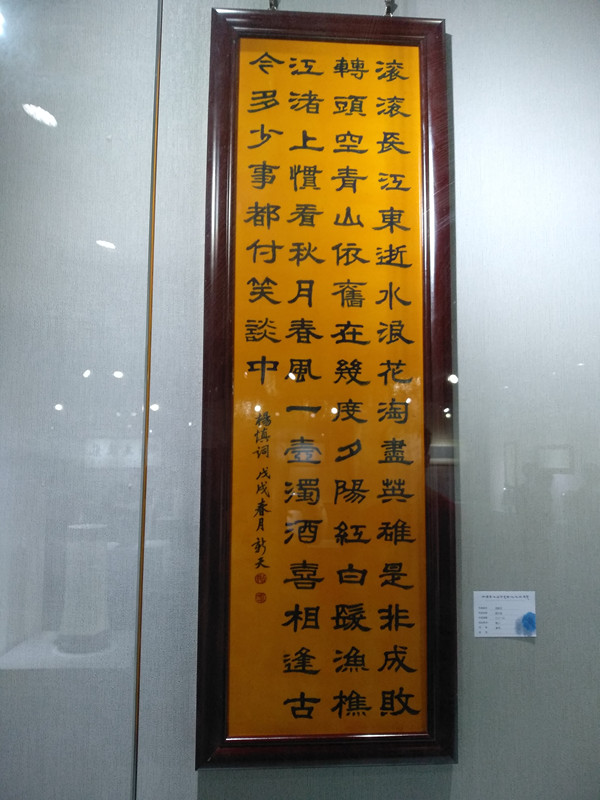 滚滚長江東逝水浪花淘盡英雄是非成敗
轉頭空青山依舊在幾度夕陽紅白髮漁樵
江渚上慣看秋月春風一壺濁酒喜相逢古
今多少事都付笑談中
楊慎词 戊戌春月 新天